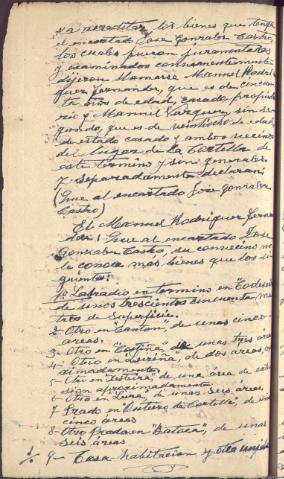 ra acreditar los bienes que tenga
el encartado José Gonzalez Castro,
los cuales fueron juramentados
y examinados convenientemente
dijeron llamarse Manuel Rodri
guez Fernandez, que es de cincuen
ta años de edad, casado propieta
rio y Manuel Vazquez, sin se
gundo, que es de veintiocho de edad
de estado casado y ambos vecinos
del lugar de la
este término y sin generales
y separadamente declaran:
(Que al encartado José Gonzalez
Castro)
El Manuel Rodriguez Fernan
dez: Que al encartado José
Gonzalez Castro, su convecino no
le conoce mas bienes que los si
guientes:
1º Labradio en término en
de unos trescientos cincuenta me
tros de superficie.
2 Otro en "Canton", de unas cinco
areas.
3 Otro en de unas tres areas
4 Otro en de dos areas, a
proximadamente.
5 Otro en de una área de exten
sion aproximadamente.
6 Otro en de unas seis areas.
7 Prado en de unas
cinco areas
8 Otro Prado en de unas
seis áreas
9 - Casa habitacion y otra